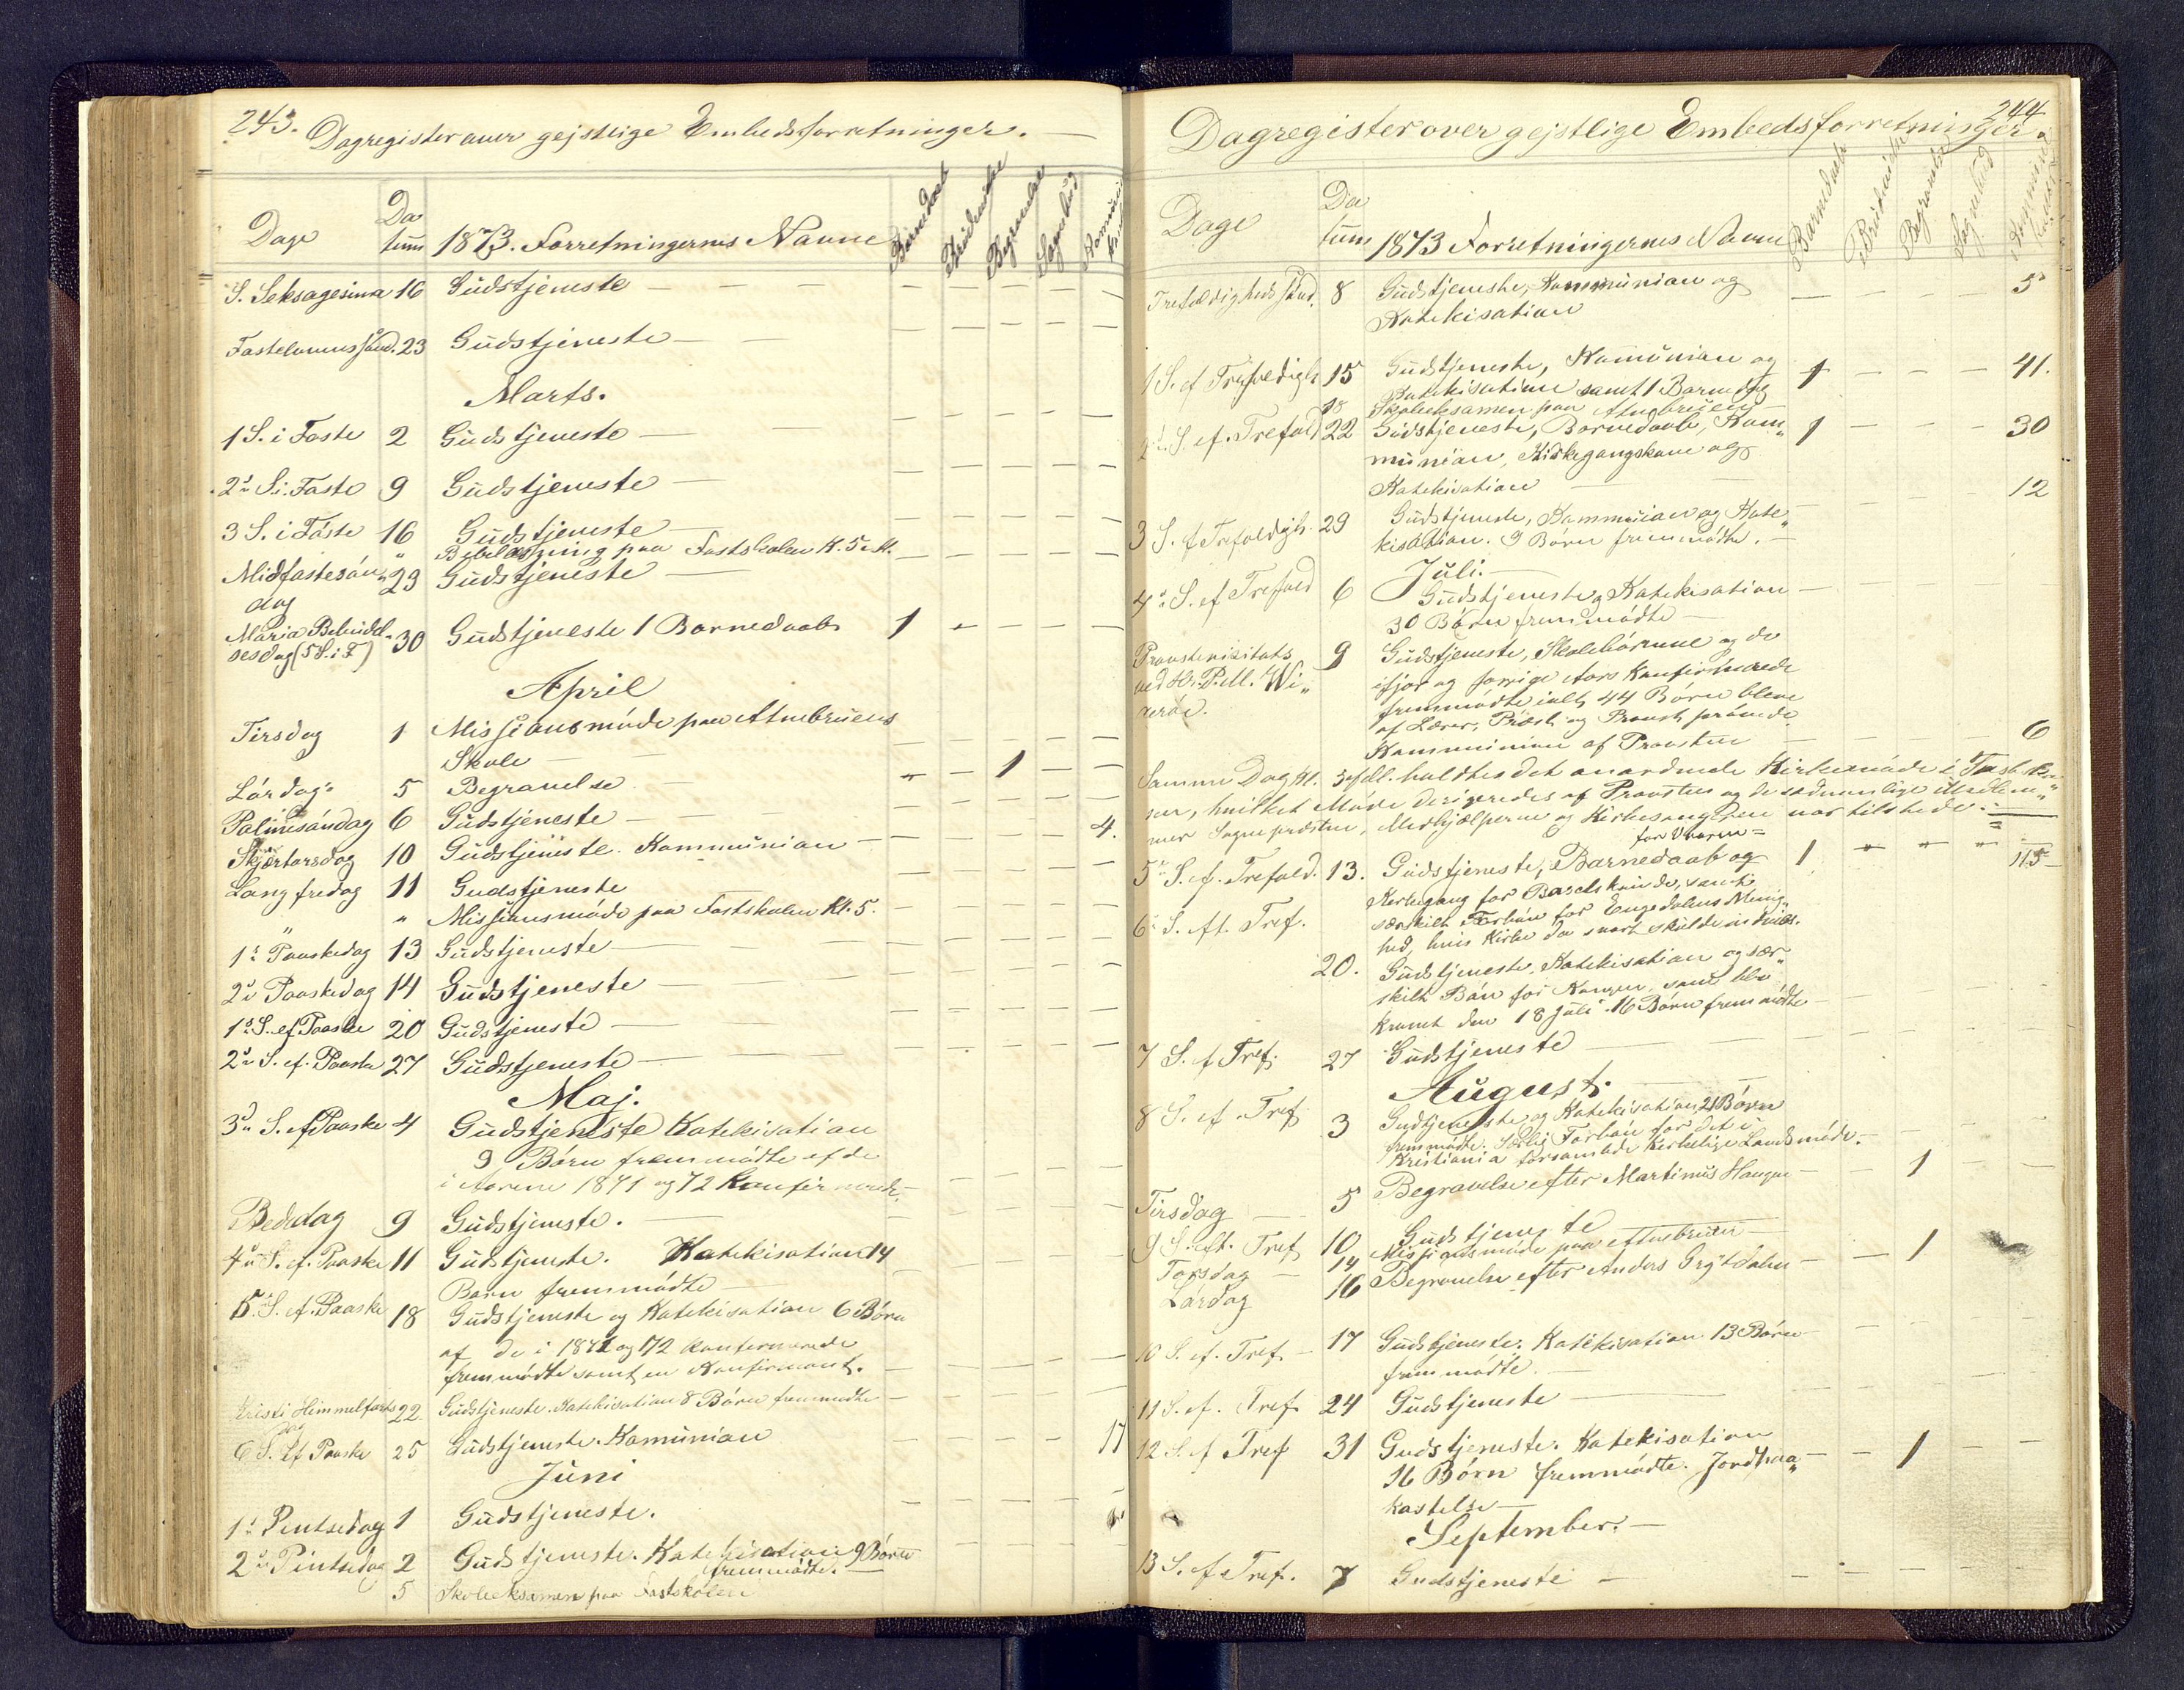 243. Dagregister over gejstlige Embedsforretninger.
Dage Datum 1873. Forretningernes Navne Barnedaab Brudevielse Begravelse Sognebud Kommunikanter
S. Seksagesima 16 Gudstjeneste
Fastelavnssønd. 23 Gudstjeneste
Marts.
1 S. i Faste 2 Gudstjeneste
2n S. i. Faste 9 Gudstjeneste
3 S. i Faste 16 Gudstjeneste
" Bibellæsning paa Fastskolen Kl. 5 e. M.
Midfastesøn„ 23 Gudstjeneste
dag
Maria Bebudel„ 30 Gudstjeneste 1 Barnedaab 1
sesdag (5 S. i F)
April
Tirsdag 1 Missionsmøde paa Atnebruens
Skole
Lørdag 5 Begravelse 1
Palmesøndag 6 Gudstjeneste
Skjærtorsdag 10 Gudstjeneste. Kommunion 4.
Langfredag 11 Gudstjeneste
" " Missionsmøde paa Fastskolen Kl. 5.
1n Paaskedag 13 Gudstjeneste
2n Paaskedag 14 Gudstjeneste
1n S. ef Paaske 20 Gudstjeneste
2n S. ef. Paaske 27 Gudstjeneste
Maj.
3n S. ef Paaske 4 Gudstjeneste Katekisation
9 Børn fremmødte af de
i Aarene 1871 og 72 Konfirmerede.
Bededag 9 Gudstjeneste.
4n S. ef. Paaske 11 Gudstjeneste. Katekisation 14
Børn fremmødte
5. S. ef. Paaske 18 Gudstjeneste og Katekisation 6 Børn
af de i 1871 og 172 konfirmerede
fremmødte samt en Konfirmant.
Kristi Himmelfarts 22 Gudstjeneste. Katekisation 8 Børn fremmødte
dag
6 S. Ef Paaske 25 Gudstjeneste. Komunion 17
Juni
1n Pintsedag 1 Gudstjeneste.
2n Pintsedag 2 Gudstjeneste. Katekisation 9 Børn
fremmødte.
5 Skoleeksamen paa Fastskolen
244
Dagregister over gejstlige Embedsforretninger
Dage Datum 1873 Forretningernes Navne Barnedaab Brudevielse Begravelse Sognebud Kommunikanter
Trefoldigheds Sønd. 8 Gudstjeneste, Kommunion og 5
Katekisation
1 S. ef Trefoldigh 15 Gudstjeneste, Komunion og 1 41.
Katekisation samt 1 Barnedaab
18 Skoleeksamen paa Atnebruen
2n S. ef. Trefold 22 Gudstjeneste, Barnedaab, Kom„ 1 30
munion, Kirkegangskone og
Katekisation
3 S. ef Trefoldigh. 29 Gudstjeneste, Kommunion og Kate„ 12
kisation. 9 Børn fremmødte.
Juli.
4n S. ef Trefold 6 Gudstjeneste og Katekisation
30 Børn fremmødte
Provstevisitats 9 Gudstjeneste, Skolebørnene og de
ved Hr. P. M. Wi„ ifjor og forrige Aars Konfirmerede
fremmødte ialt 44 Børn bleve
af Lærer, Præst og Provst prøvede
Kommunion af Provsten 6
Samme Dag Kl. holdtes det anordnede Kirkemøde i
hvilket Møde dirigeredes af Provsten og de sædvanlige Medlem„
mer Sognepræsten, Medhjælperne og Kirkesangeren var tilstede.
for Vaaren=
5n S. ef. Trefold. 13. Gudstjeneste, Barnedaab og 1 115
Kirkegang for Barselkvinde, samt
6n S. ft. Tref. særskilt Forbøn for Engerdalens Menig„
hed, hvis Kirke da snart skulde indvies.
20. Gudstjeneste, Katekisation og sær„
skilt Bøn for Kongen, som blev
kronet den 18 Juli. 16 Børn fremmødte
7 S. ef Tref. 27 Gudstjeneste
August.
8 S. ef. Tref 3 Gudtjeneste og Katekisation, 21 Børn
fremmødte. Særlig Forbøn for det i
Kristiania forsamlede kirkelige Landsmøde.
Tirsdag 5 Begravelse efter Martinus Haugen 1
9 S. eft. Tref 10 Gudstjeneste
Torsdag 14 Missionsmøde paa Atnebruen
Lørdag 16 Begravelse efter Anders Grøtdalen 1
10 S. ef. Tref 17 Gudstjeneste. Katekisation 13 Børn
fremmødte.
11 S. ef. Tref 24 Gudstjeneste
12 S. ef Tref 31 Gudstjeneste. Katekisation 1
16 Børn fremmødte. Jordpaa„
kastelse
September.
13 S. ef Tref. 7 Gudstjeneste